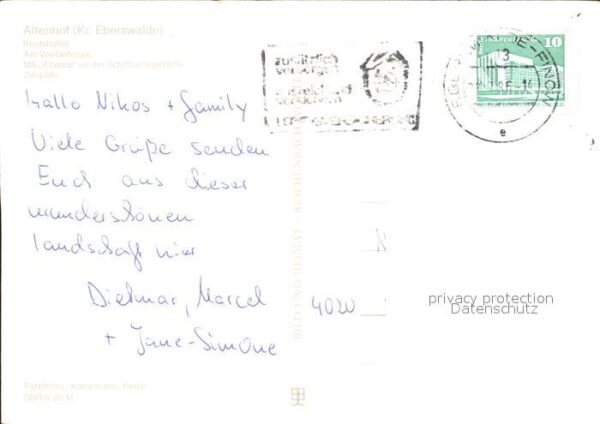 Altenhof (Kr. Eberswalde)
Bootshafen
Am Werbellinsee
MS "Altwarp" an der Schiffsanlegestelle
Zeltplatz
zusätzlich
versorgen
ausreichend
versichern
10
3
EBERSWALDE-FINOW
e
Hallo Nikos + family
Viele Grüße senden
Euch aus dieser
wunderschönen
Landschaft hier
Dietmar, Marcel
+ Jane-Simone
BILD UND HEIMAT REICHENBACH
N
4020
privacy protection
Datenschutz
Farbfotos: Kampmann, Berlin
DDR 0,20 M